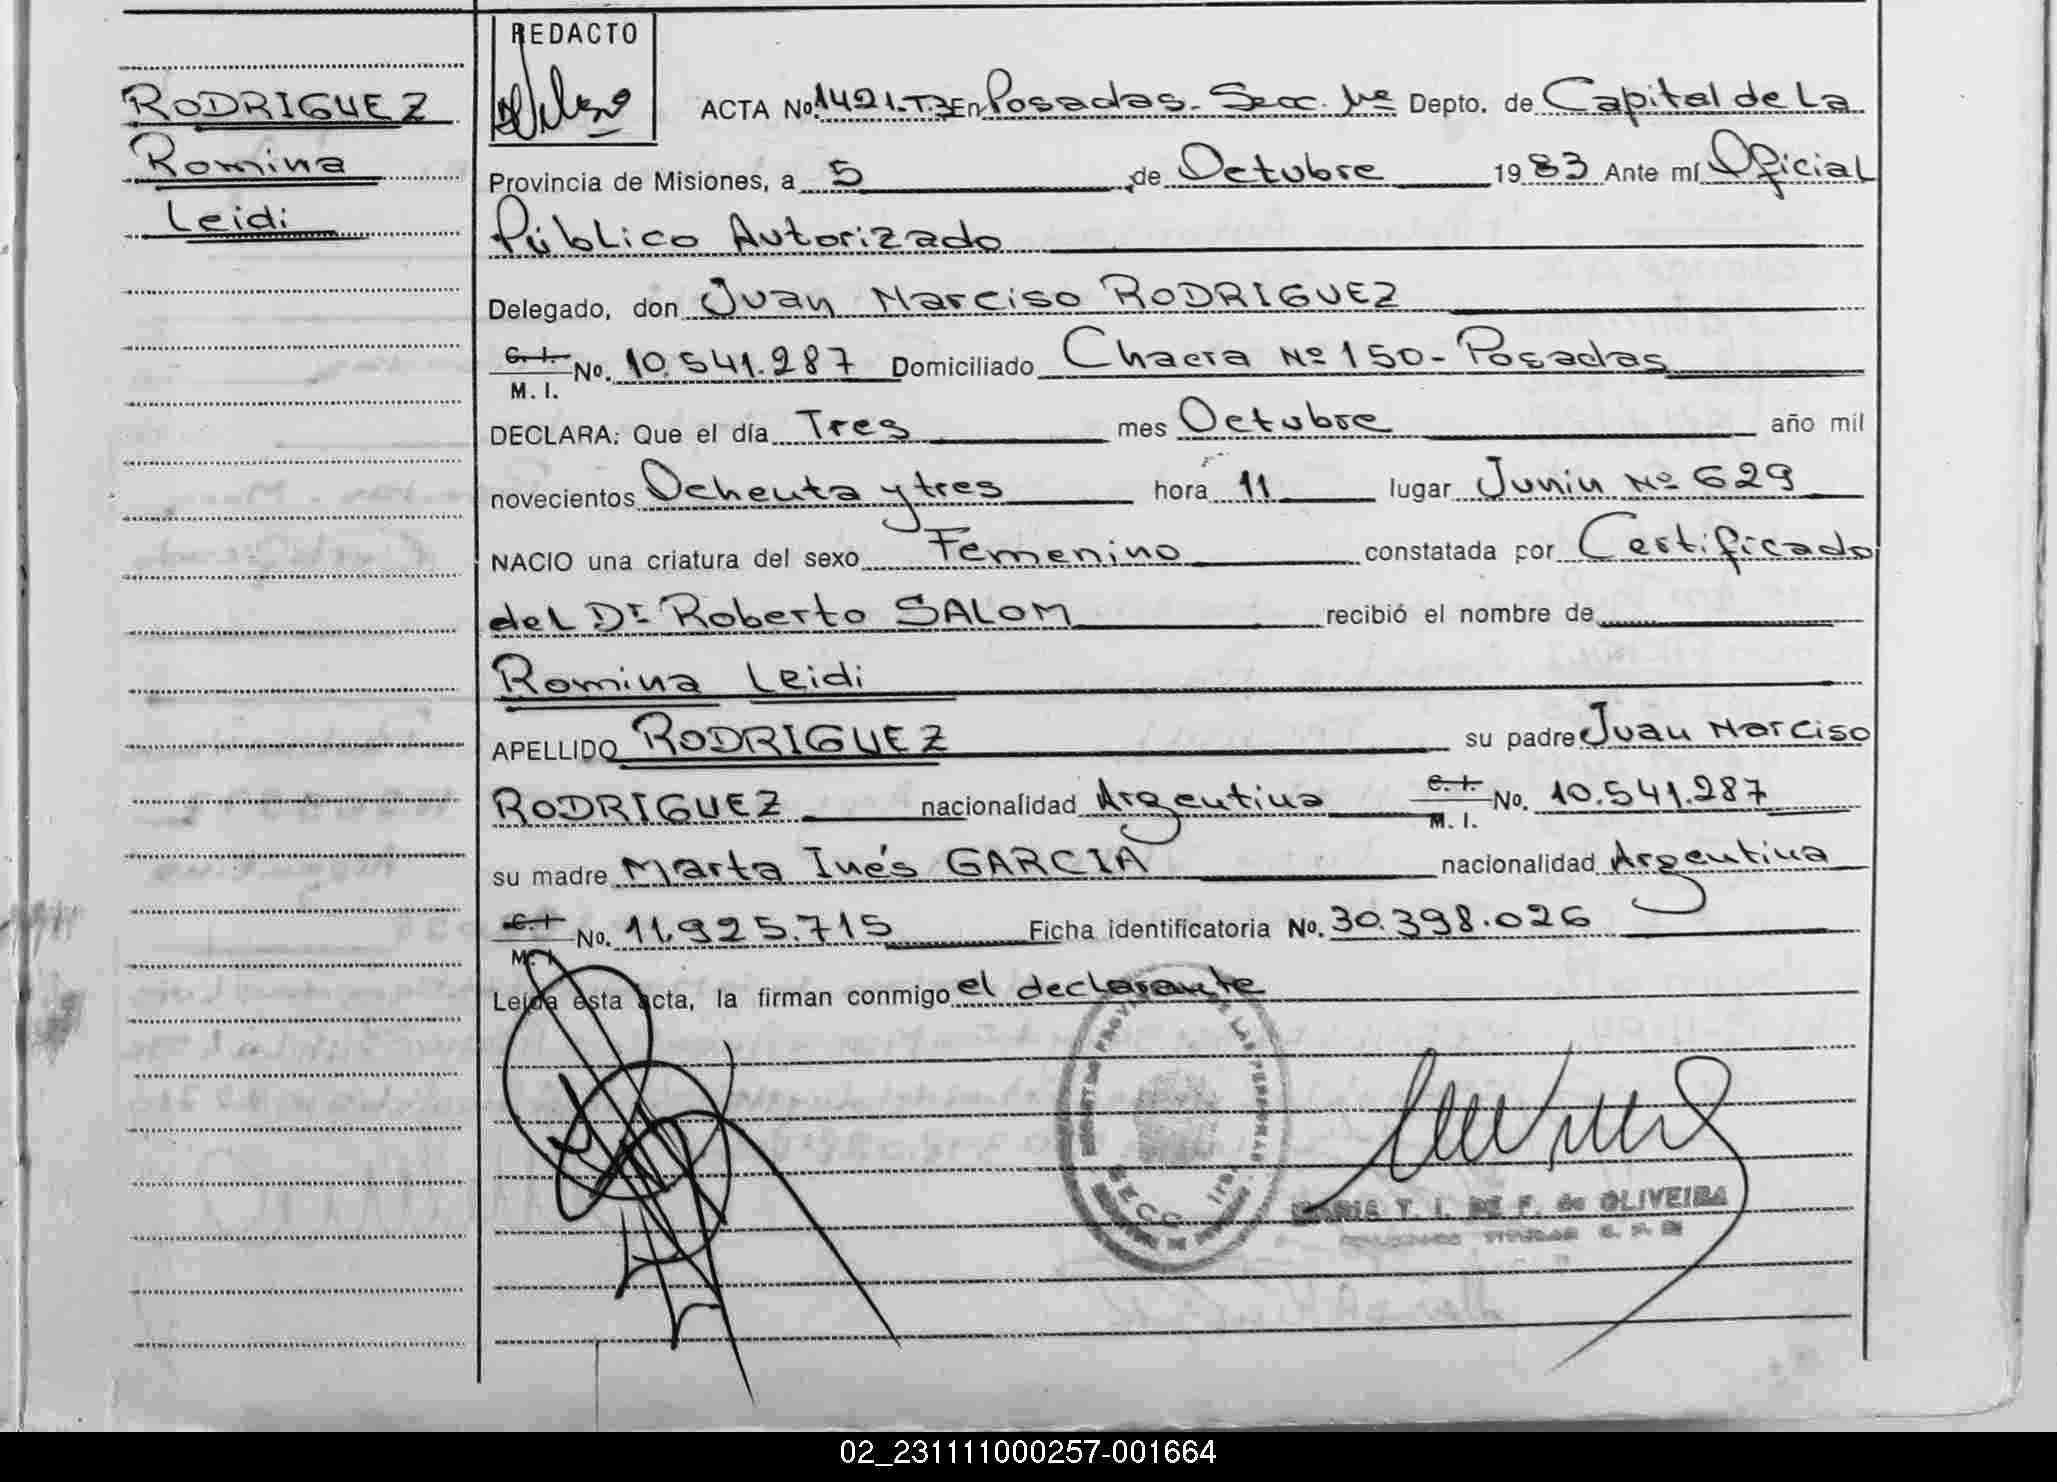 RODRIGUEZ
Romina
Leidi
REDACTO
ACTA No. 1421.T.3 En Posadas. Secc. 1ra Depto. de Capital de La
Provincia de Misiones, a 5 de Octubre 1983 Ante mí Oficial
Público Autorizado
Delegado, don Juan Narciso RODRIGUEZ
C. I.
M. I. No. 10.541.287 Domiciliado Chacra Nº 150 - Posadas
DECLARA: Que el día Tres mes Octubre año mil
novecientos Ochenta y tres hora 11 lugar Junin Nº 629
NACIO una criatura del sexo Femenino constatada por Certificado
del Dr Roberto SALOM recibió el nombre de
Romina Leidi
APELLIDO RODRIGUEZ su padre Juan Narciso
RODRIGUEZ nacionalidad Argentina C. I.
M. I. No. 10.541.287
su madre Marta Inés GARCIA nacionalidad Argentina
C. I.
M. I. No. 11.925.715 Ficha identificatoria No. 30.398.026
Leída esta acta, la firman conmigo el declarante
DE LAS PERSONAS
SECC 1ra.
MARIA T. I. DE F. de OLIVEIRA
TITULAR
02_231111000257-001664